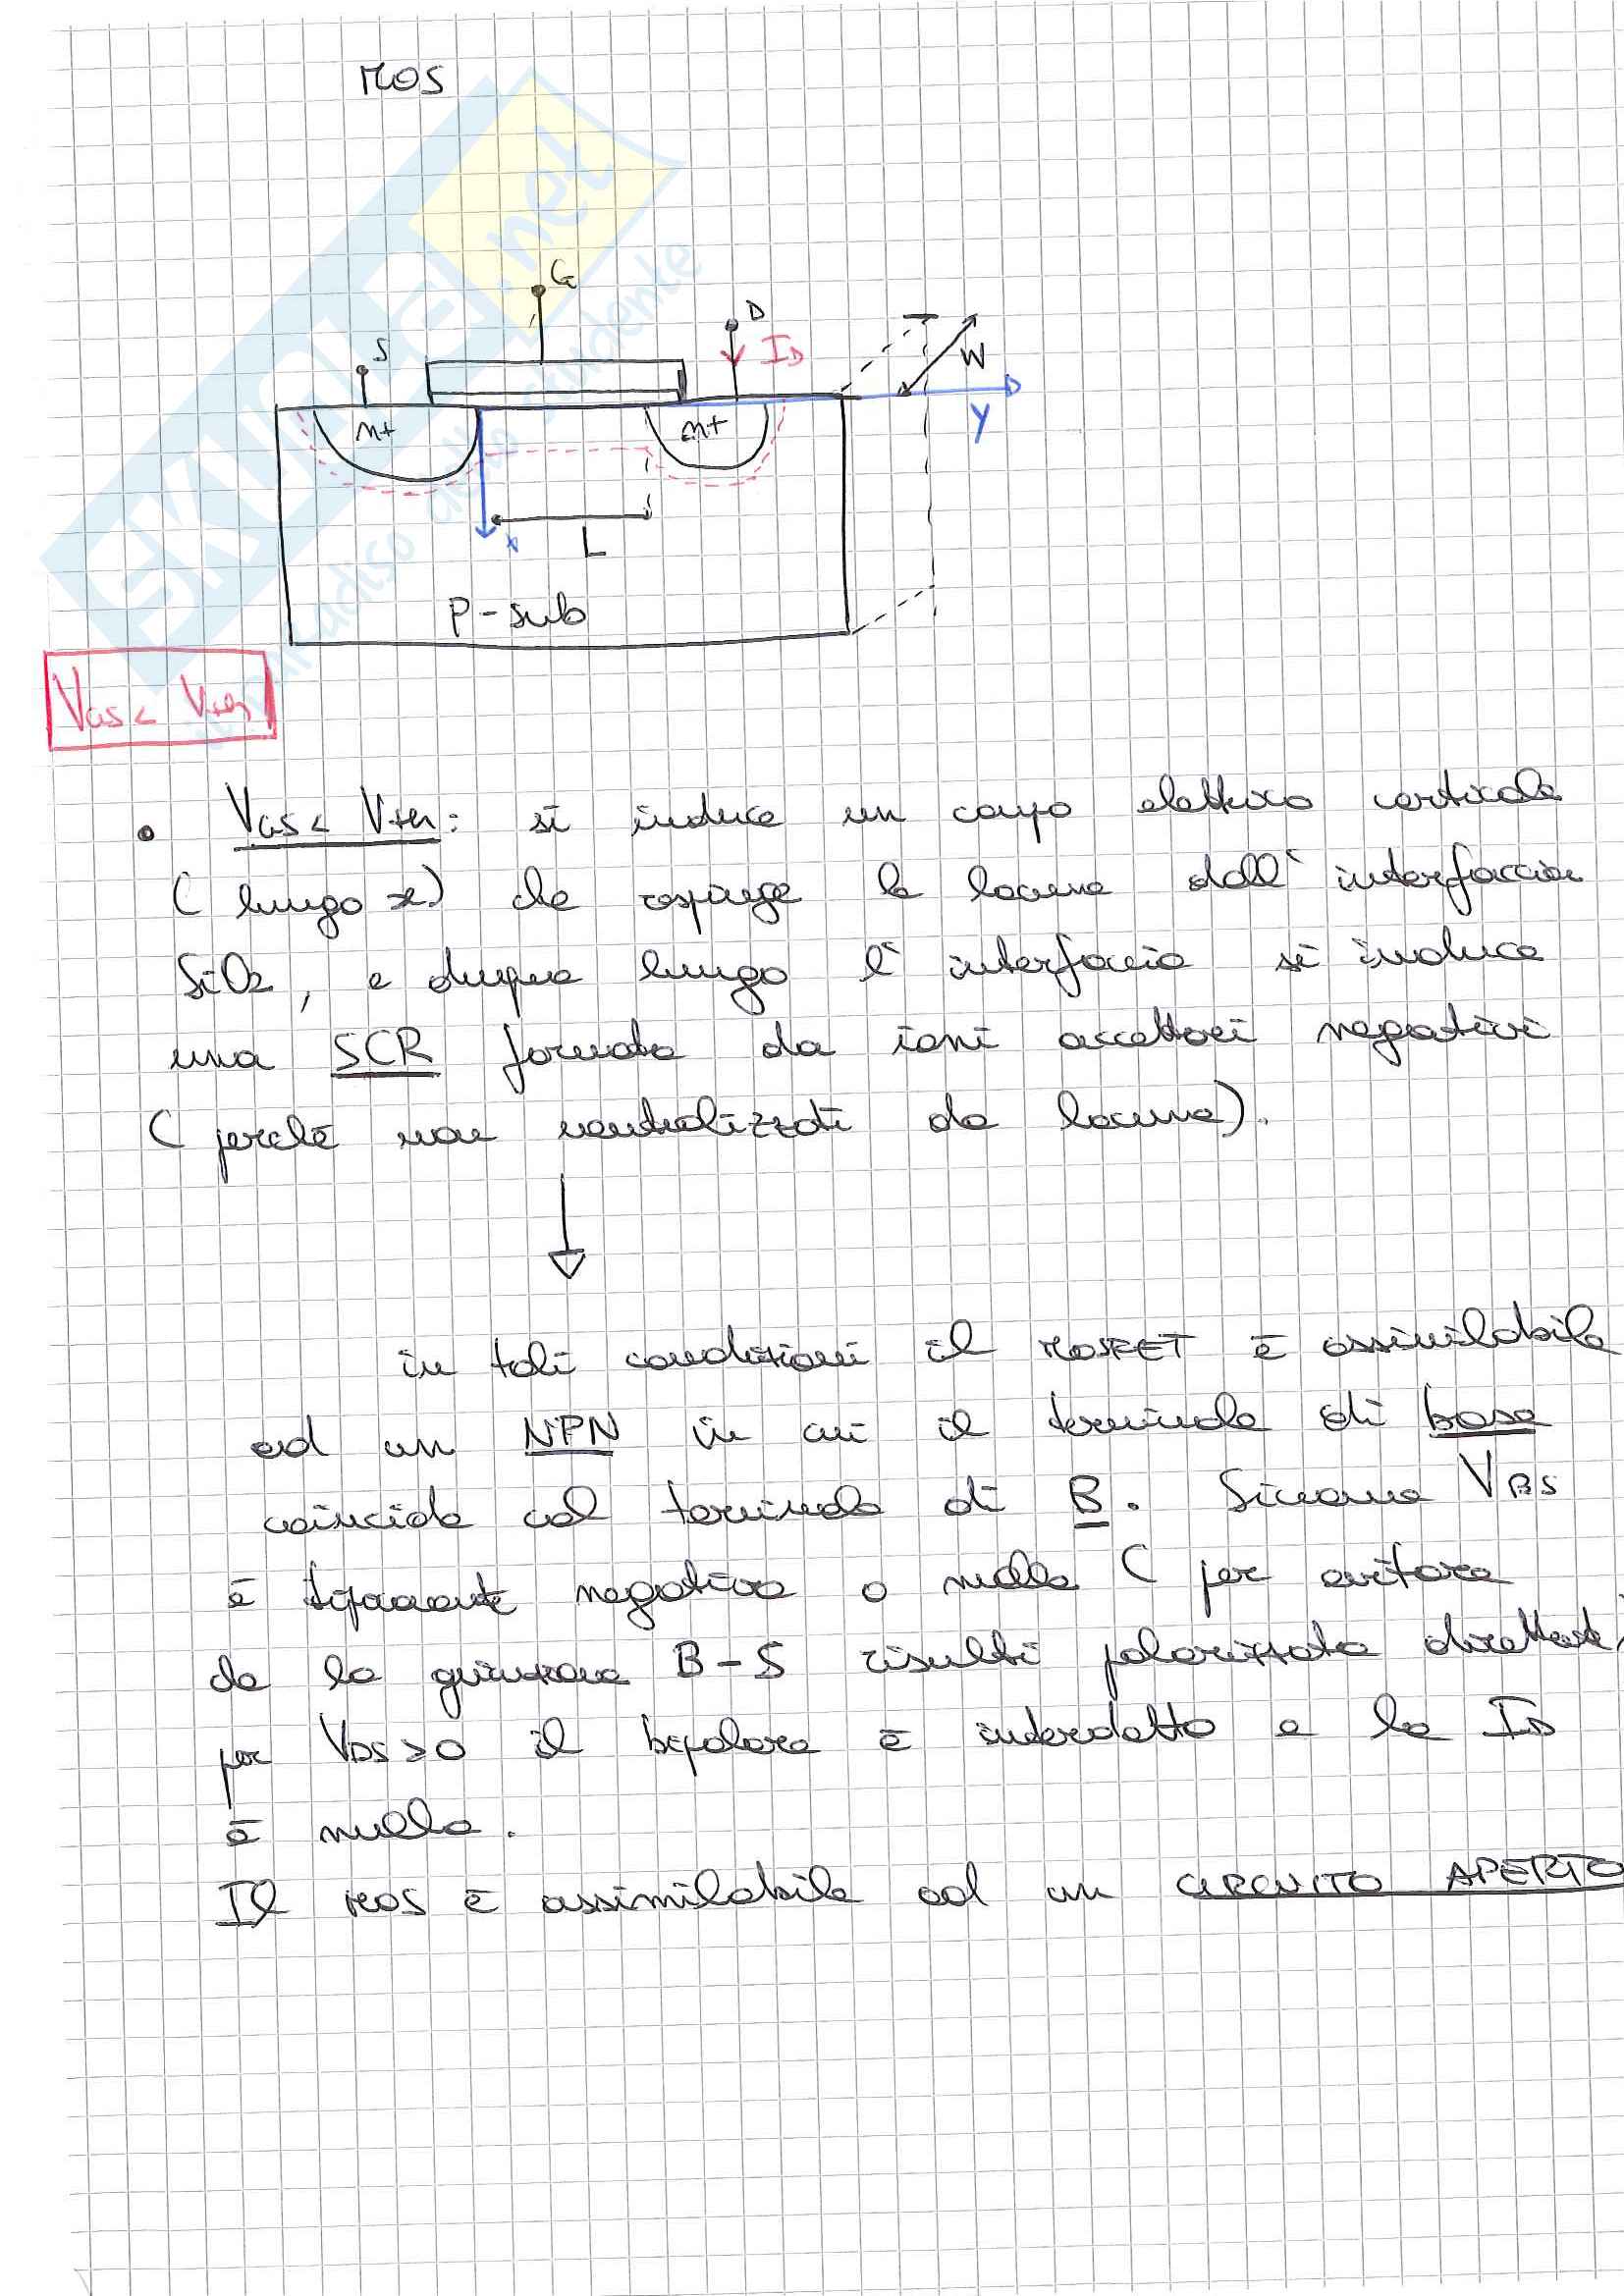 MOS
SKUOLA.net
G
D
ID
S
W
n+
n+
Y
x
L
P-sub
VGS < Vth
• VGS < Vth: si induce un campo elettrico verticale
(lungo x) che respinge le lacune dall'interfaccia
SiO2, e dunque lungo l'interfaccia si induce
una SCR formata da ioni accettori negativi
(perché non neutralizzati da lacune).
in tali condizioni il MOSFET è assimilabile
ad un NPN in cui il terminale di base
coincide col terminale di B. Siccome VBS
è negativa o nulla (per evitare
che la giunzione B-S risulti polarizzata
per VDS>0 il bipolare è interdetto e la ID
è nulla.
Il MOS è assimilabile ad un CIRCUITO APERTO